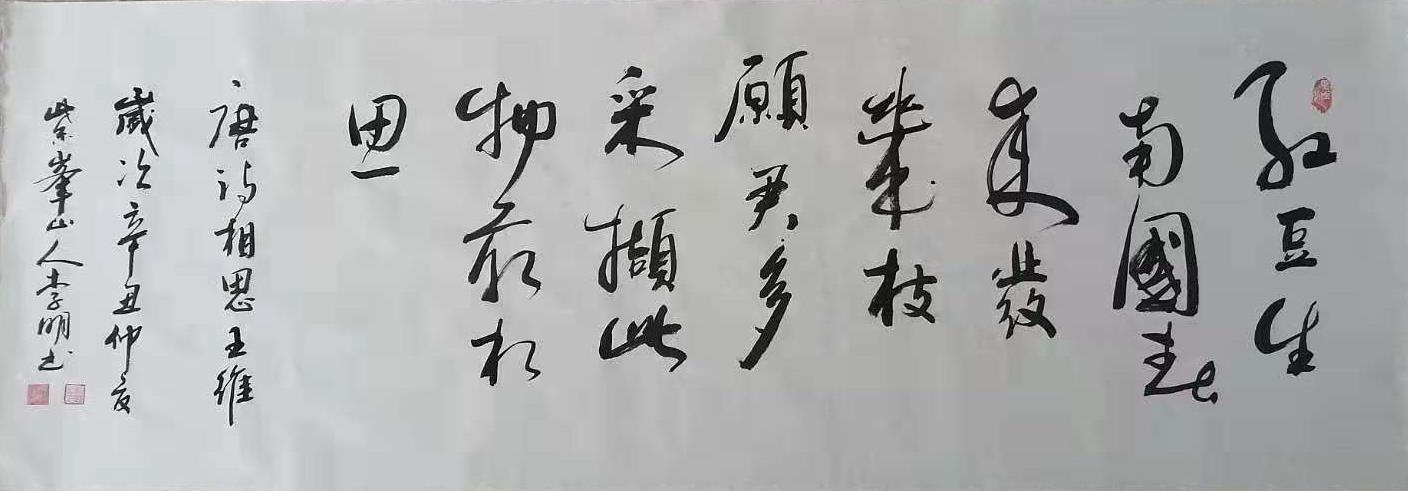 红豆生
南國春
来發
幾枝
願君多
采擷此
物最相
思
唐诗相思王維
歲次辛丑仲夏
紫峯山人李明书